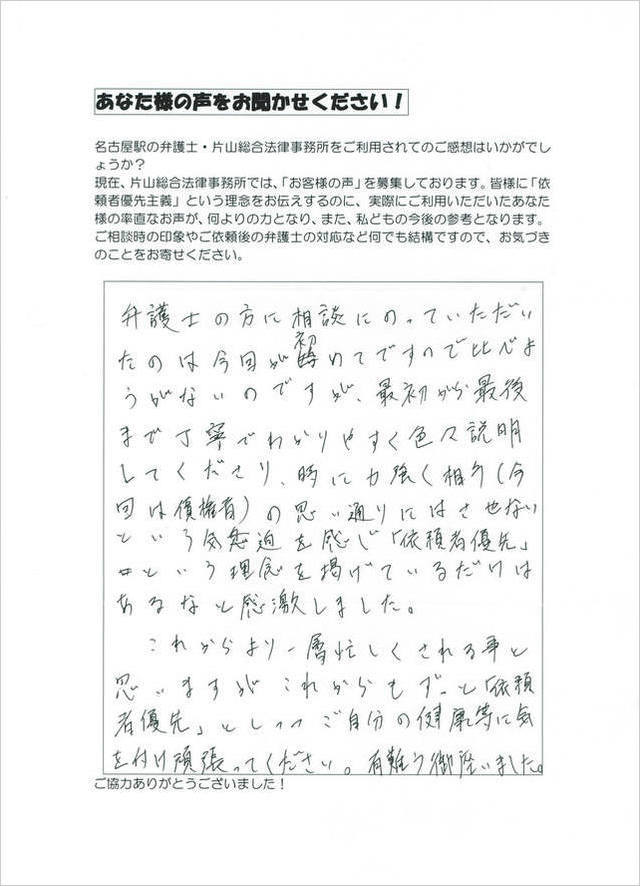 あなた様の声をお聞かせください！
名古屋駅の弁護士・片山総合法律事務所をご利用されてのご感想はいかがでし
ょうか？
現在、片山総合法律事務所では、「お客様の声」を募集しております。皆様に「依
頼者優先主義」という理念をお伝えするのに、実際にご利用いただいたあなた
様の率直なお声が、何よりの力となり、また、私どもの今後の参考となります。
ご相談時の印象やご依頼後の弁護士の対応など何でも結構ですので、お気づき
のことをお寄せください。
弁護士の方に相談にのっていただい
たのは今回が初めてですので比べよ
うがないのですが、最初から最後
まで丁寧でわかりやすく色々説明
してくださり、時に力強く相手（今
回は債権者）の思い通りにはさせない
という気迫を感じ「依頼者優先」
という理念を掲げているだけは
あるなと感激しました。
これからより一層忙しくされる事と
思いますがこれからもずっと「依頼
者優先」としつつご自分の健康等に気
を付け頑張ってください。有難う御座いました。
ご協力ありがとうございました！